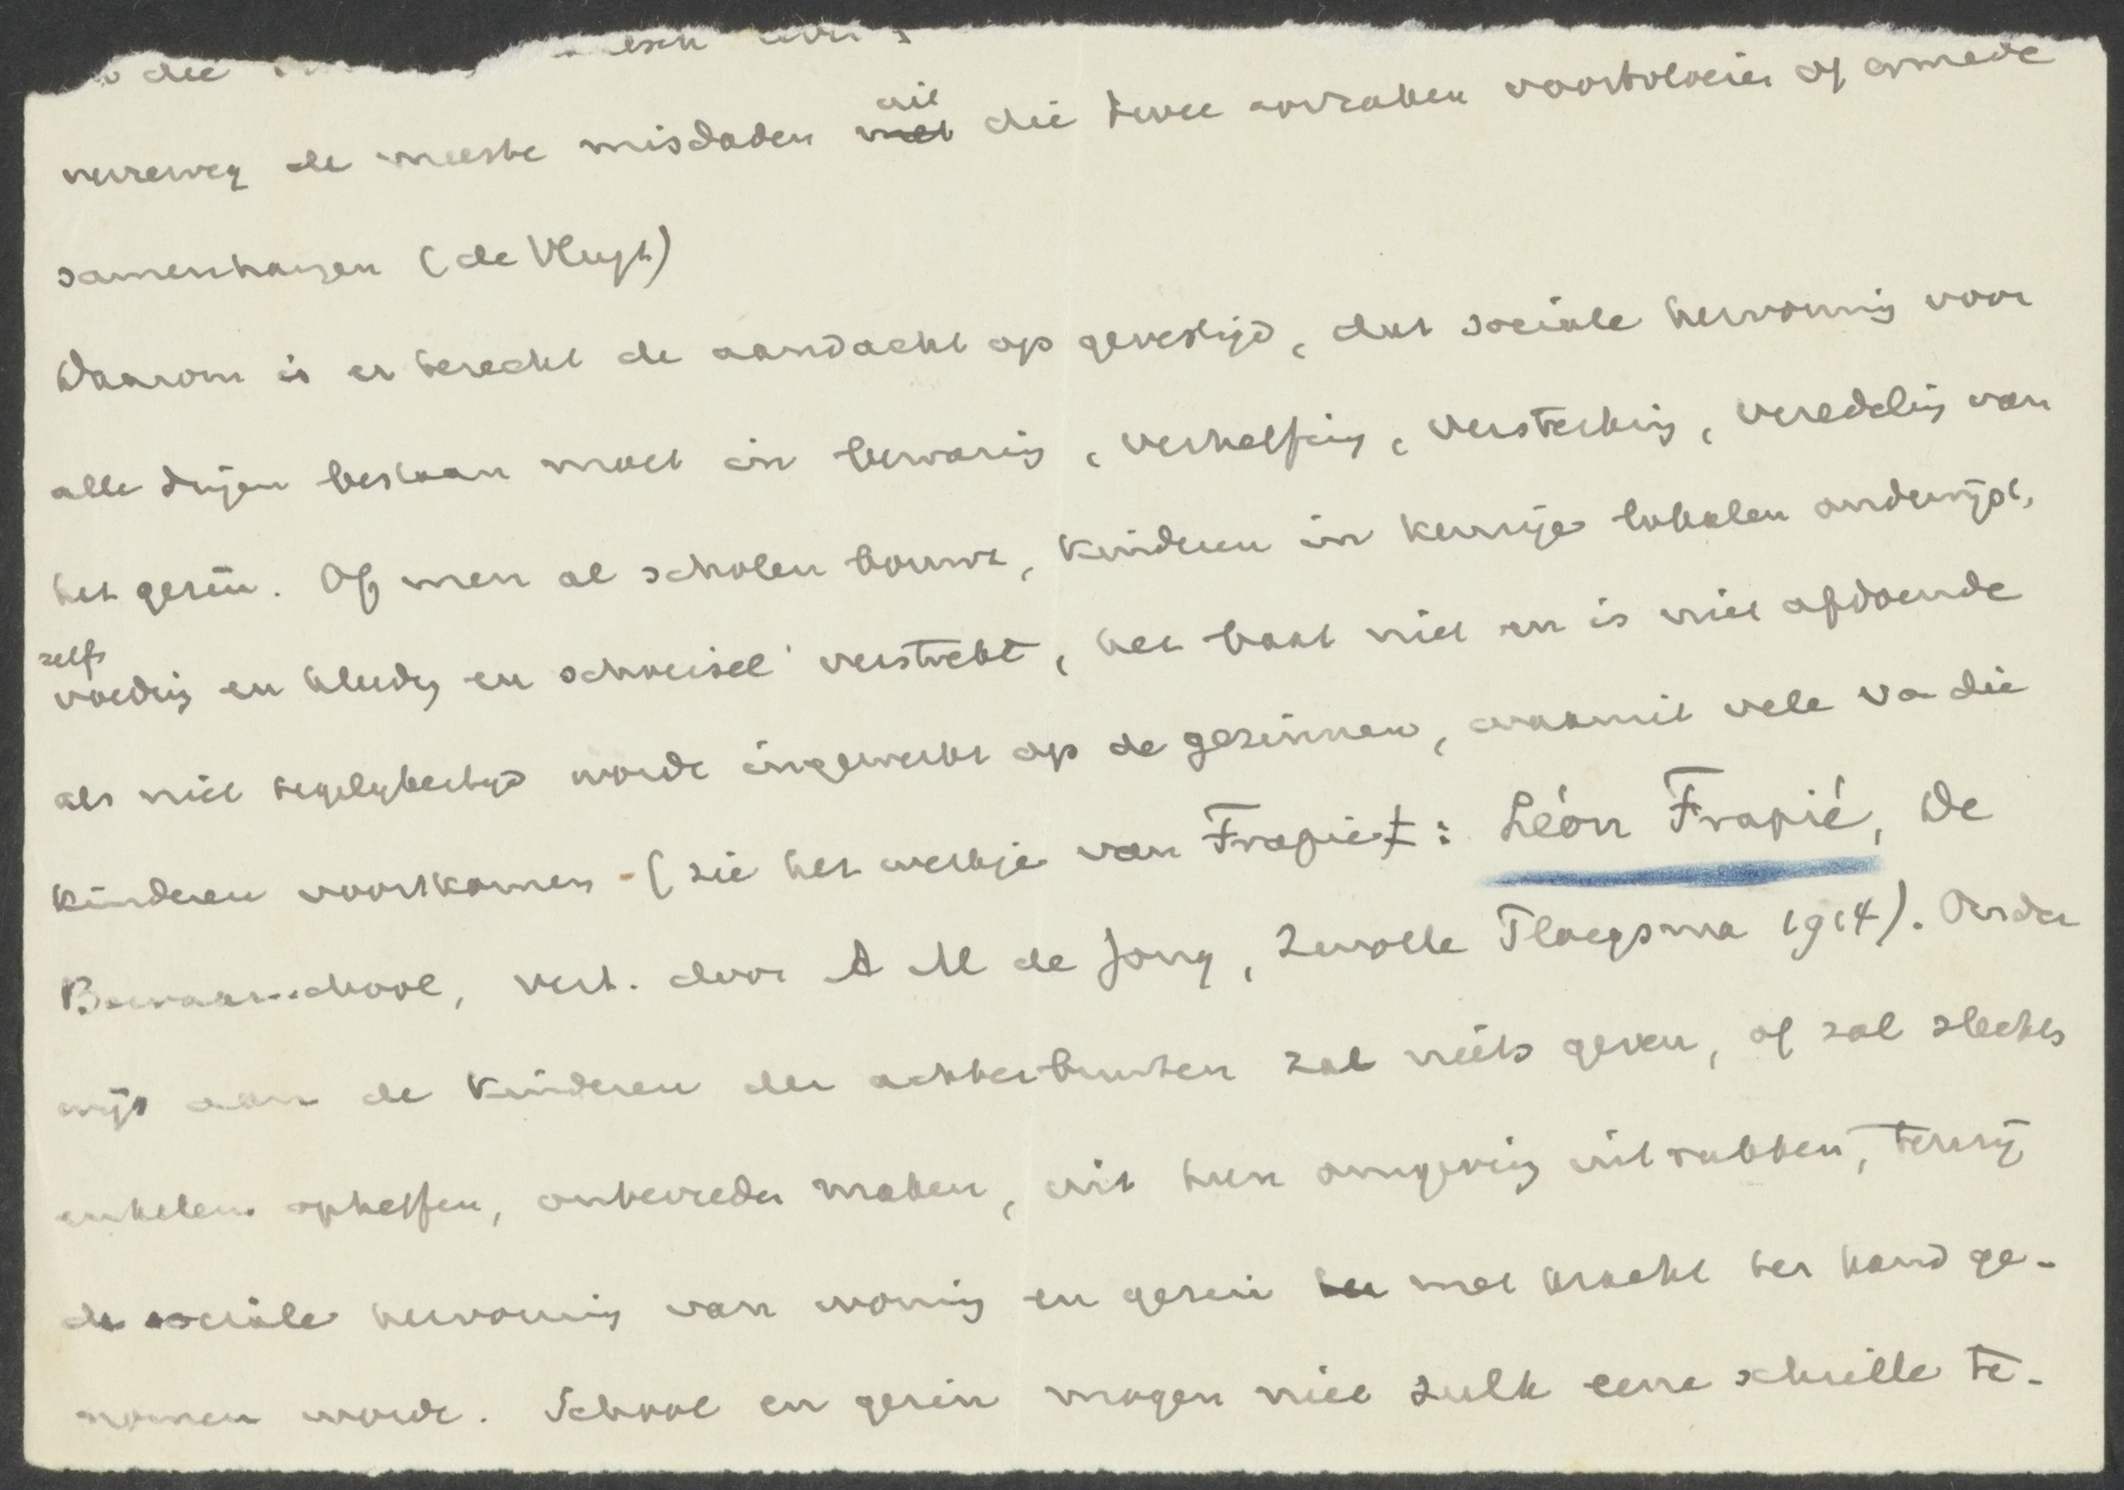 die
verreweg de meeste misdaden uit met die twee oorzaken voortvloeien of ermede
samenhangen (de Vlugt)
Daarom is er terecht de aandacht op gevestigd, dat sociale hervorming voor
alle dingen bestaan moet in bewaring, verheffing, versterking, veredeling van
het gezin. Of men al scholen bouwt, kinderen in keurige lokalen onderwijst,
zelfs
voeding en kleeding en schoeisel verstrekt, het baat niet en is niet afdoende
als niet tegelijkertijd wordt ingewerkt op de gezinnen, waaruit vele va die
kinderen voortkomen - (zie het werkje van Frapiet: Léon Frapié, De
Bewaarschool, vert. door A M de Jong, Zwolle Ploegsma 1914). Onder
wijs aan de kinderen der achterbuurten zal niets geven, of zal slechts
enkelen opheffen, ontevreden maken, uit hun omgeving uitrukken, tenzij
de sociale hervorming van woning en gezin ter met kracht ter hand ge-
nomen wordt. School en gezin mogen niet zulk eene schrille te-